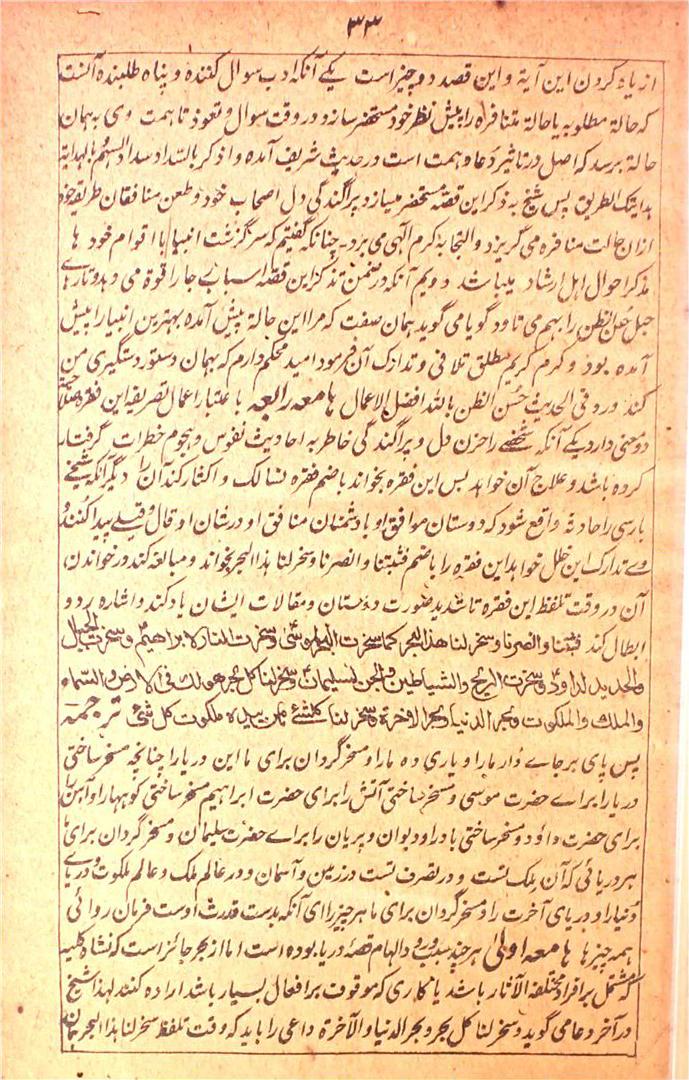 ۳۳
از یاد کردن این آیة و این قصد دو چیز است یکے آنکه ادب سوال کننده و پناه طلبنده آنست
که حالة مطلوبه یا حالة متنافره را پیش نظر خود مستحضر سازد و در وقت سوال و تعوذ تا همت وی به همان
حالة برسد که اصل در تاثیر دعا و همت است در حدیث شریف آمده و اذکر بالسداد سداد السهم و بالهدایة
هدایتک الطریق پس شیخ به ذکر این قصه مستحضر میسازد پراگندگی دل اصحاب خود و طعن منافقان طریقه خود
ازان حالت منافره می گریزد و التجا به کرم الهی می برد چنانکه گفتیم که سرگزشت انبیا با اقوام خود ها
مذکر احوال اهل ارشاد میباشد دویم آنکه در ضمن تذکر این قصه اسباب رجا را قوة می دهد و تارهای
حبل حسن الظن را بهم می تاود گویا می گوید همان صفت که مرا این حالة پیش آمده بهترین انبیا را پیش
آمده بود و کرم کریم مطلق تلافی و تدارک آن فرمود امید محکم دارم که بهمان دستور دستگیری من
کند و در و فی الحدیث حسن الظن بالله افضل الاعمال هامعه رابعه با عتبار اعمال تصریفیه این فقره
دو معنی دارد یکے آنکه شخصے را حزن دل و پراگندگی خاطر به احادیث نفوس و هجوم خطرات گرفتار
کرده باشد و علاج آن خواهد پس این فقره بخواند باضم فقره نسالک و اکثار کند آن را دیگر آنکه شیخے
پارسی را حادثه واقع شود که دوستان موافق او با دشمنان منافق او در شان او قال و قیلے پیدا کنند و
وے تدارک این خلل خواهد این فقره را باضم فثبتنا و انصرنا و سخر لنا هذا البحر بخواند و مبالغه کند در خواندن
آن در وقت تلفظ این فقره تا شدید صورت دوستان و مقالات ایشان یاد کند و اشاره رد و
ابطال کند فثبتنا وانصرنا وسخر لنا هذا البحر کما سخرت البحر لموسی وسخرت النار لابراهیم وسخرت الجبال
والحدید لداود وسخرت الریح والشیاطین والجن لسلیمان وسخر لنا کل بحر هو لک فی الارض والسماء
والملک والملکوت وبحر الدنیا وبحر الاخرة وسخر لنا کل شئ یا من بیده ملکوت کل شئ ترجمه
پس پای بر جاے دار ما را و یاری ده ما را و مسخر گردان برای ما این دریا را چنانچه مسخر ساختی
دریا را براے حضرت موسی و مسخر ساختی آتش را برای حضرت ابراهیم مسخر ساختی کوهها را و آهن را
برای حضرت داؤد و مسخر ساختی باد را و دیوان و پریان را براے حضرت سلیمان و مسخر گردان برای ما
هر دریائی که آن ملک تست و در تصرف تست در زمین و آسمان و در عالم ملک و عالم ملکوت و دریای
دنیا را و دریای آخرت را و مسخر گردان برای ما هر چیز را ای آنکه بدست قدرت اوست فرمان روائی
همه چیزها هامعه اولی هر چند سبب ورود الهام قصه دریا بوده است اما از بحر جائز است که نشاة کلیه
که مشتمل بر افراد مختلفة الآثار باشد یا کاری که موقوف بر افعال بسیار باشد اراده کنند لهذا شیخ
در آخر دعا می گوید و سخر لنا کل بحر و بحر الدنیا و الآخرة داعی را باید که وقت تلفظ سخر لنا هذا البحر همان